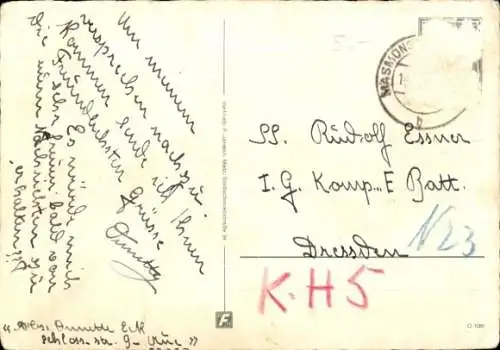 Um meinem
versprechen nachzu-
kommen sende ich Ihnen
die freundlichsten Grüsse
Es würde mich
sehr freuen bald von
Ihnen Nachrichten zu
erhalten!!
Annette
"Abs. Annette Eck
schloss-str. 9 - Aue"
MASMÜNS
b
SS. Rudolf Essner
I. G. Komp. E Batt.
Dresden
N23
K.H5
5.-
F